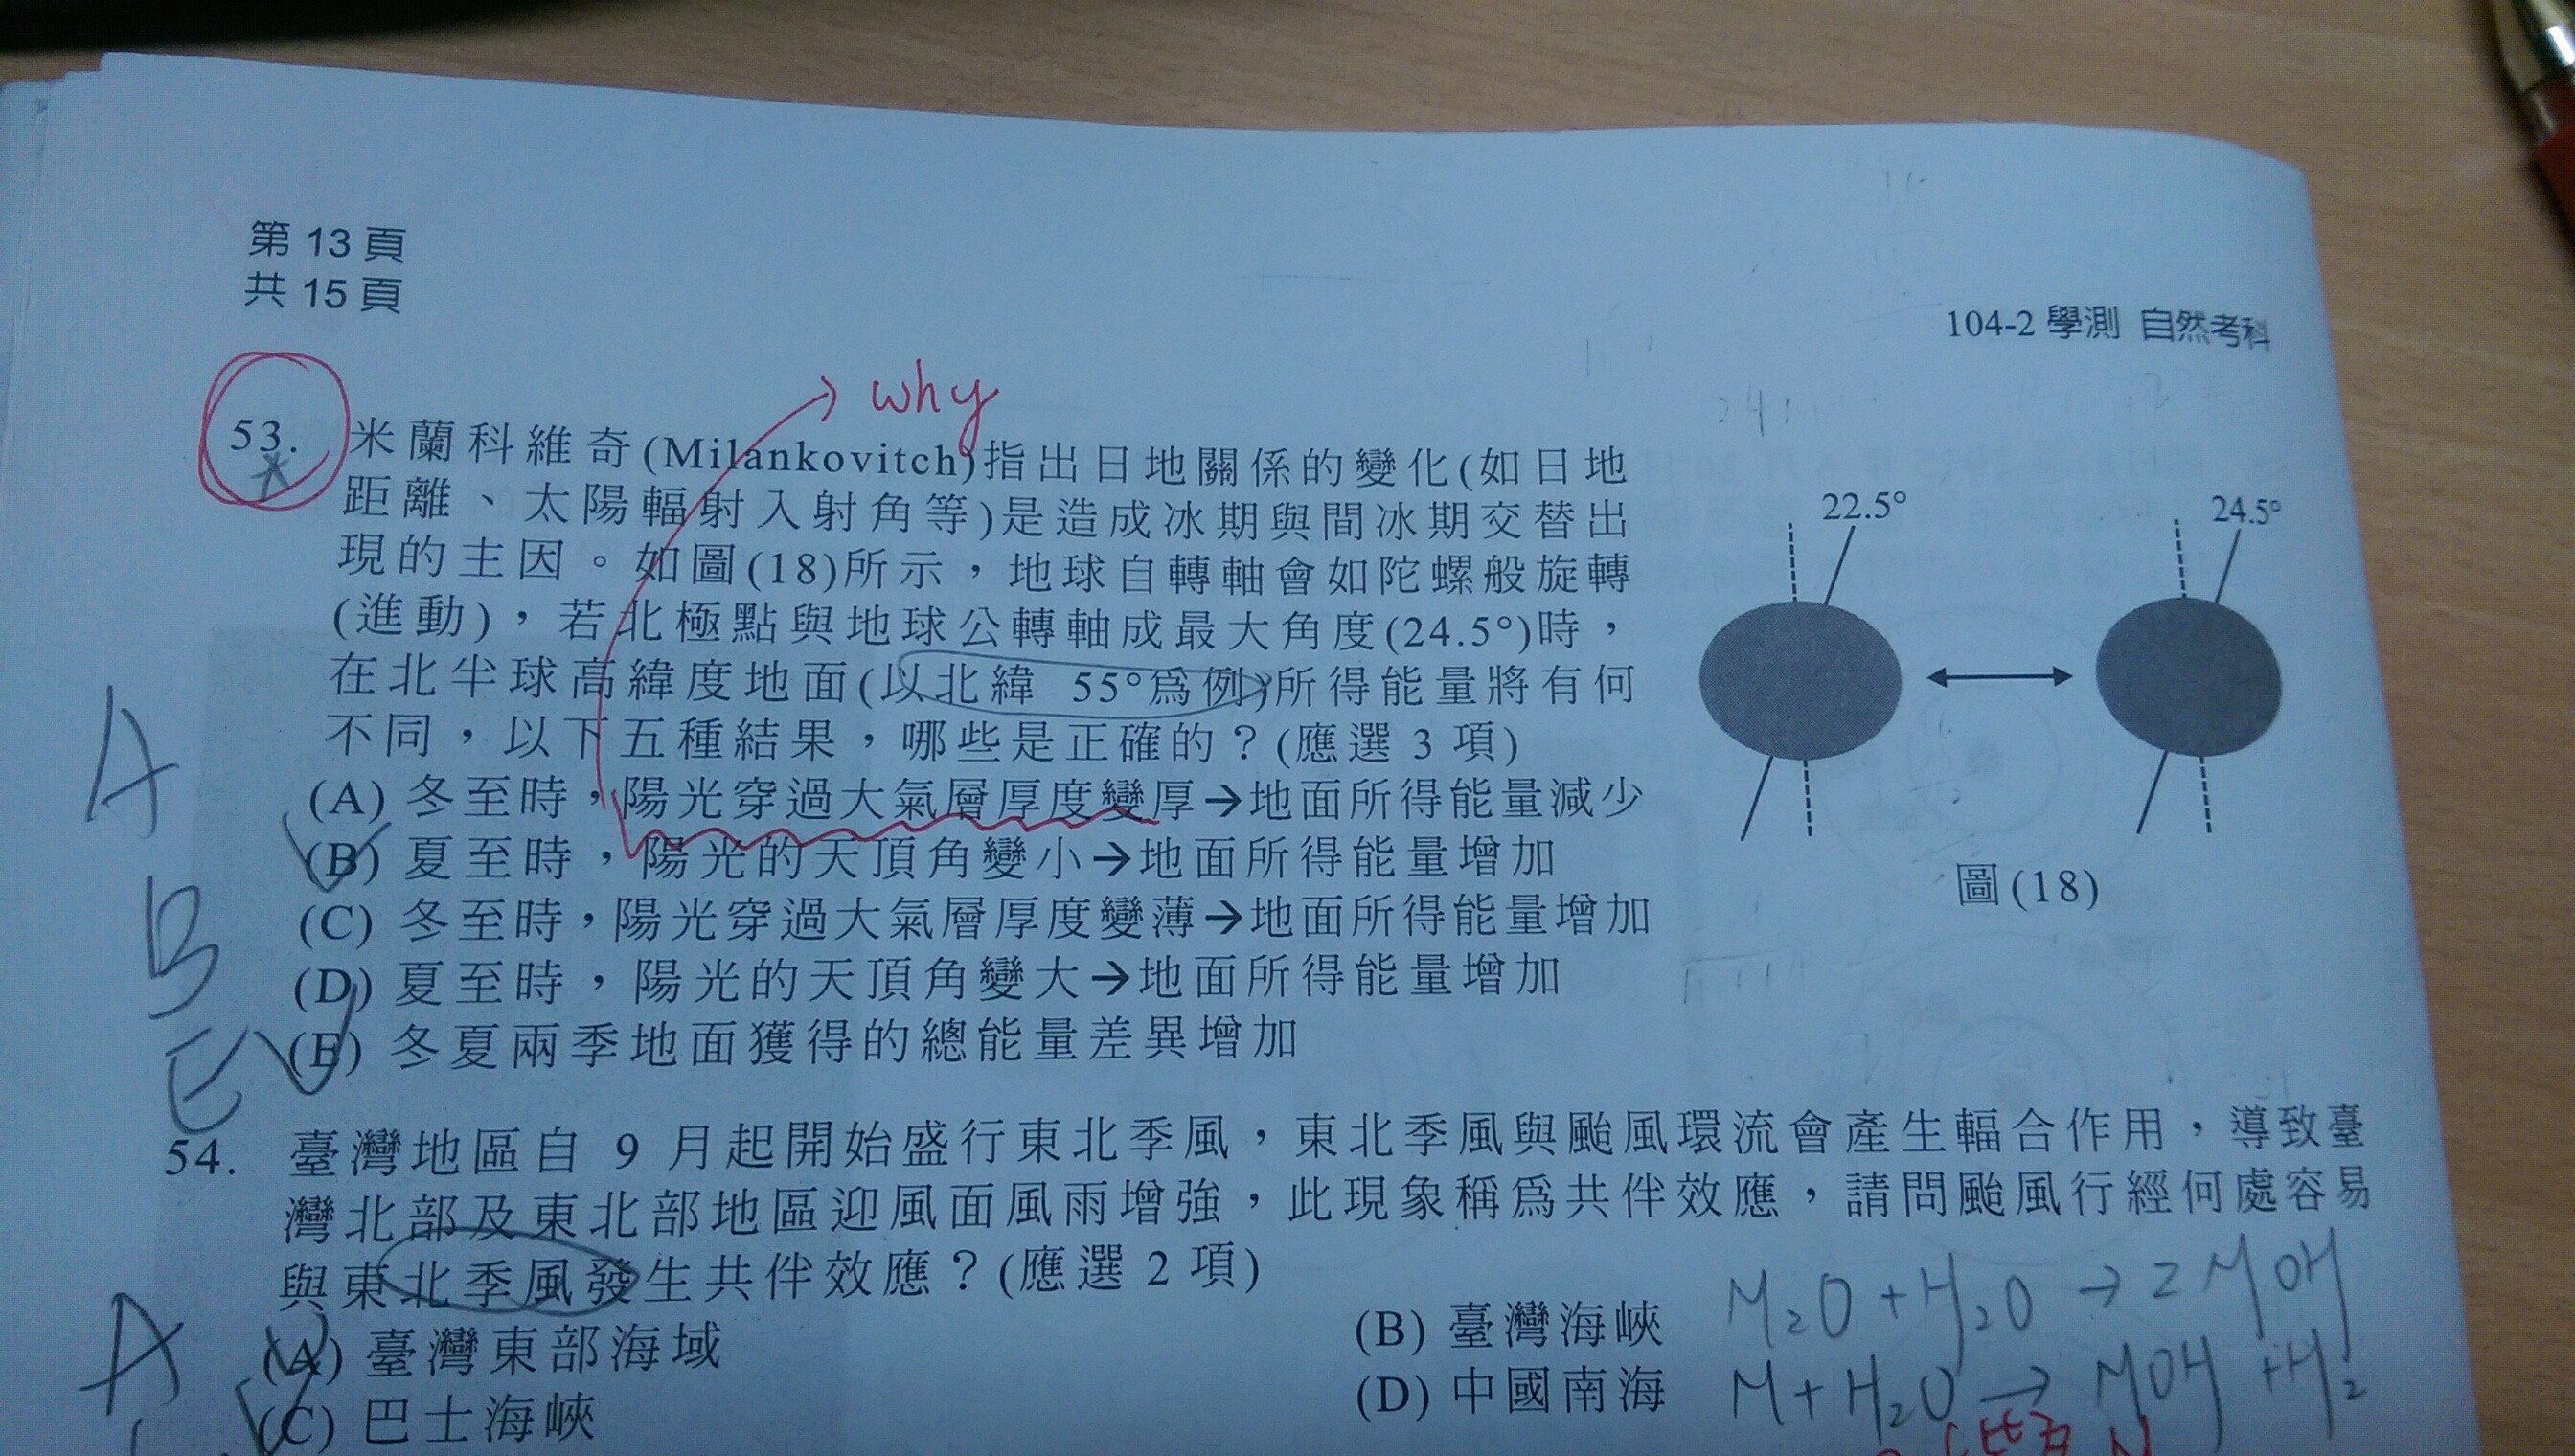 第 13 頁
共 15 頁
104-2 學測 自然考科
why
53. 米蘭科維奇(Milankovitch)指出日地關係的變化(如日地
距離、太陽輻射入射角等)是造成冰期與間冰期交替出
現的主因。如圖(18)所示，地球自轉軸會如陀螺般旋轉
(進動)，若北極點與地球公轉軸成最大角度(24.5°)時，
在北半球高緯度地面(以北緯 55°為例)所得能量將有何
不同，以下五種結果，哪些是正確的？(應選 3 項)
(A) 冬至時，陽光穿過大氣層厚度變厚→地面所得能量減少
(B) 夏至時，陽光的天頂角變小→地面所得能量增加
(C) 冬至時，陽光穿過大氣層厚度變薄→地面所得能量增加
(D) 夏至時，陽光的天頂角變大→地面所得能量增加
(E) 冬夏兩季地面獲得的總能量差異增加
22.5°
24.5°
圖(18)
A
B
E
54. 臺灣地區自 9 月起開始盛行東北季風，東北季風與颱風環流會產生輻合作用，導致臺
灣北部及東北部地區迎風面風雨增強，此現象稱為共伴效應，請問颱風行經何處容易
與東北季風發生共伴效應？(應選 2 項)
(A) 臺灣東部海域
(B) 臺灣海峽
(C) 巴士海峽
(D) 中國南海
A
M₂O + H₂O → 2MOH
M + H₂O → MOH + H₂